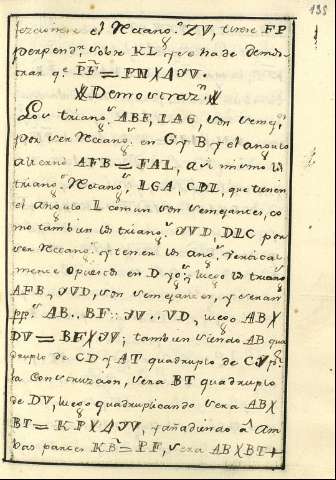 193
el Rectang.º ZV, tirese FP
perpend.r sobre KL, y se ha de demos
trar q.e PF = FN X 4 IV.
Demostraz.n
Los triang.s ABF, LAG, son semej.s
por ser Rectang.s en G y B y el angulo
alterno AFB = FAL, asi mismo los
triang.s Rectang.s LGA, CDL, que tienen
el angulo L comun son semejantes, co
mo tambien los triang.s IVD, DLC por
ser Rectang.s y tener los ang.s verticals
mente opuestos en D y luego los triang.s
AFB, IVD, son semejantes, y seran
pp.s AB .. BF :: IV .. VD, luego AB X
DV = BF X IV; tambien siendo AB qua
druplo de CD y AT quadruplo de CV p.r
la Construzion, sera BT quadruplo
de DV, luego quadruplicando sera AB X
BT = KF X 4 IV, y añadiendo â am
bas partes KB = PF, sera AB X BT +